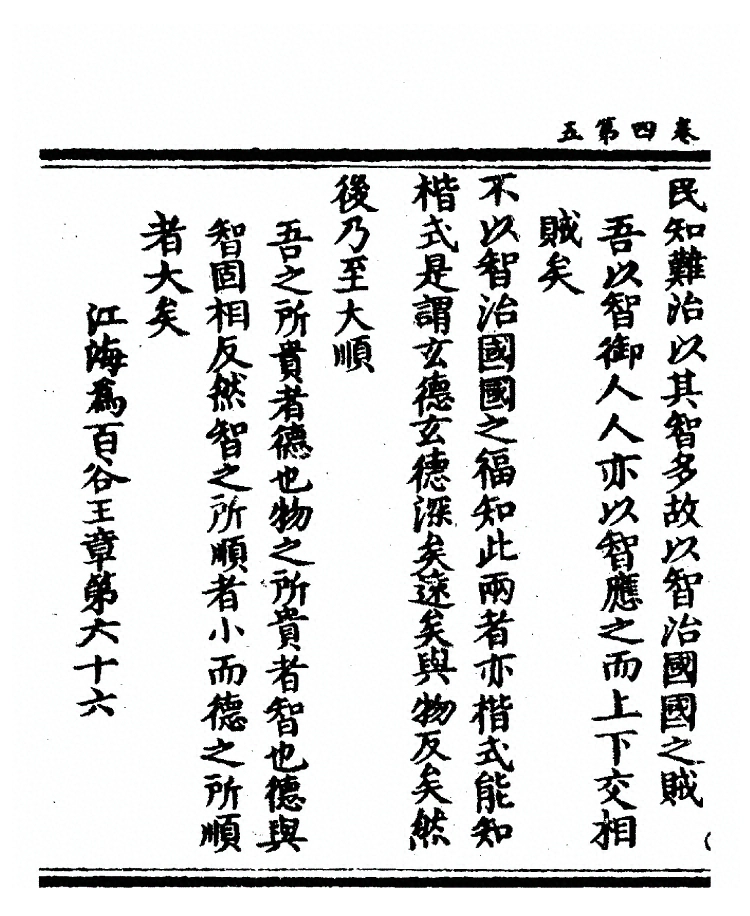 卷四第五
民知難治以其智多故以智治國國之賊
吾以智御人人亦以智應之而上下交相
賊矣
不以智治國國之福知此兩者亦楷式能知
楷式是謂玄德玄德深矣遠矣與物反矣然
後乃至大順
吾之所貴者德也物之所貴者智也德與
智固相反然智之所順者小而德之所順
者大矣
江海為百谷王章第六十六